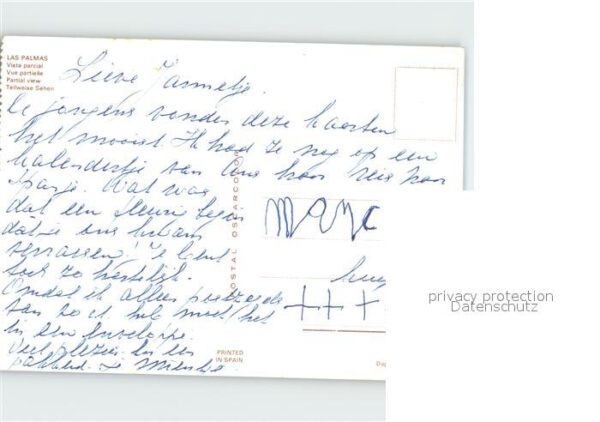 LAS PALMAS
Vista parcial
Vue partielle
Partial view
Teilweise Sehen
Lieve Jannetje.
De jongens vonden deze kaarten
het mooist. Ik had ze nog op een
kalendertje van ons voor reis naar
Spanje. Wat was
dat een fleurig begin
dat je ons kwam
verrassen! Je bent
toch zo hartelijk.
Omdat ik alleen postzegels
van 20 ct heb moet het
in een enveloppe.
Veel plezier en een
pakkerd. Je
marc
+++
POSTAL OSCARCOLOR
PRINTED
IN SPAIN
Dep
privacy protection
Datenschutz